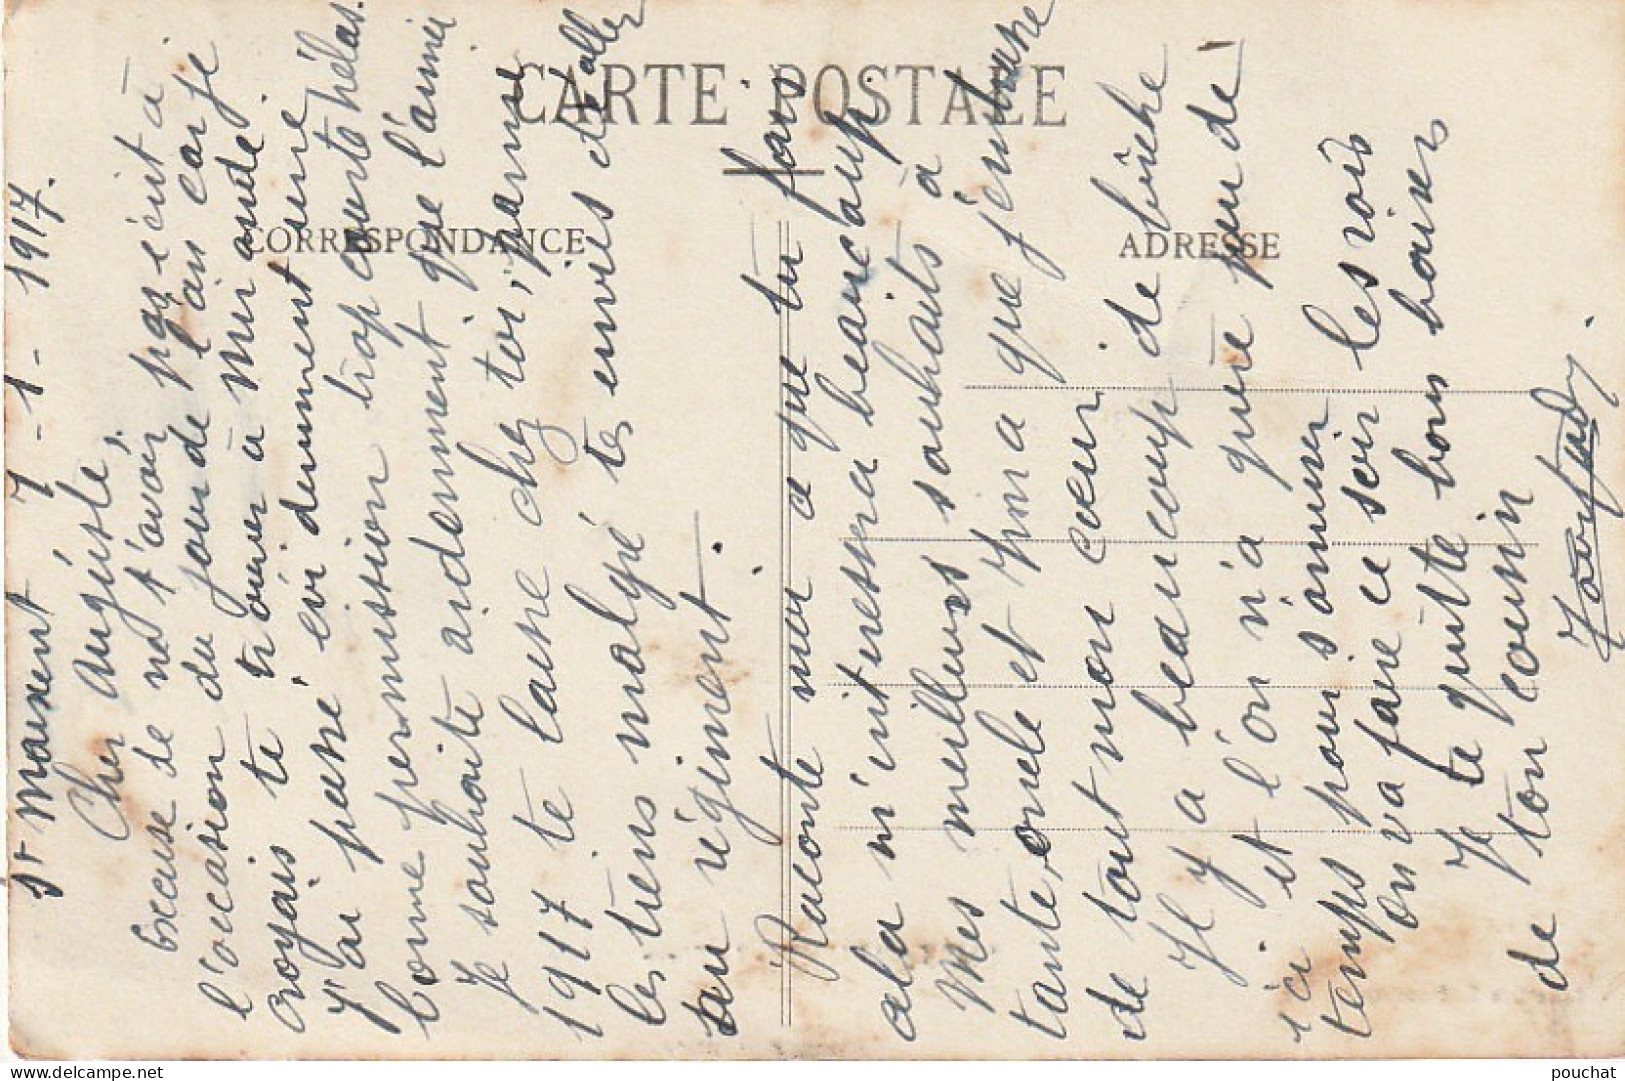 CARTE POSTALE
CORRESPONDANCE
ADRESSE
St Maixent 7-1-1917.
Cher Auguste,
Excuse de ne t'avoir pas écrit à
l'occasion du jour de l'an car je
croyais te trouver à Mirande
J'ai passé évidemment une
bonne permission trop courte hélas.
Je souhaite ardemment que l'année
1917 te laisse chez toi, parmi
les tiens malgré tes envies d'aller
au régiment.
Raconte moi ce que tu fais
cela m'intéressera beaucoup
Mes meilleurs souhaits à
tante, oncle et Irma que j'embrasse
de tout mon cœur.
Il y a beaucoup de bûche
ici et l'on n'a guère peu de
temps pour s'amuser
On va faire ce soir les rois
Je te quitte bons baisers
de ton cousin
pouchat